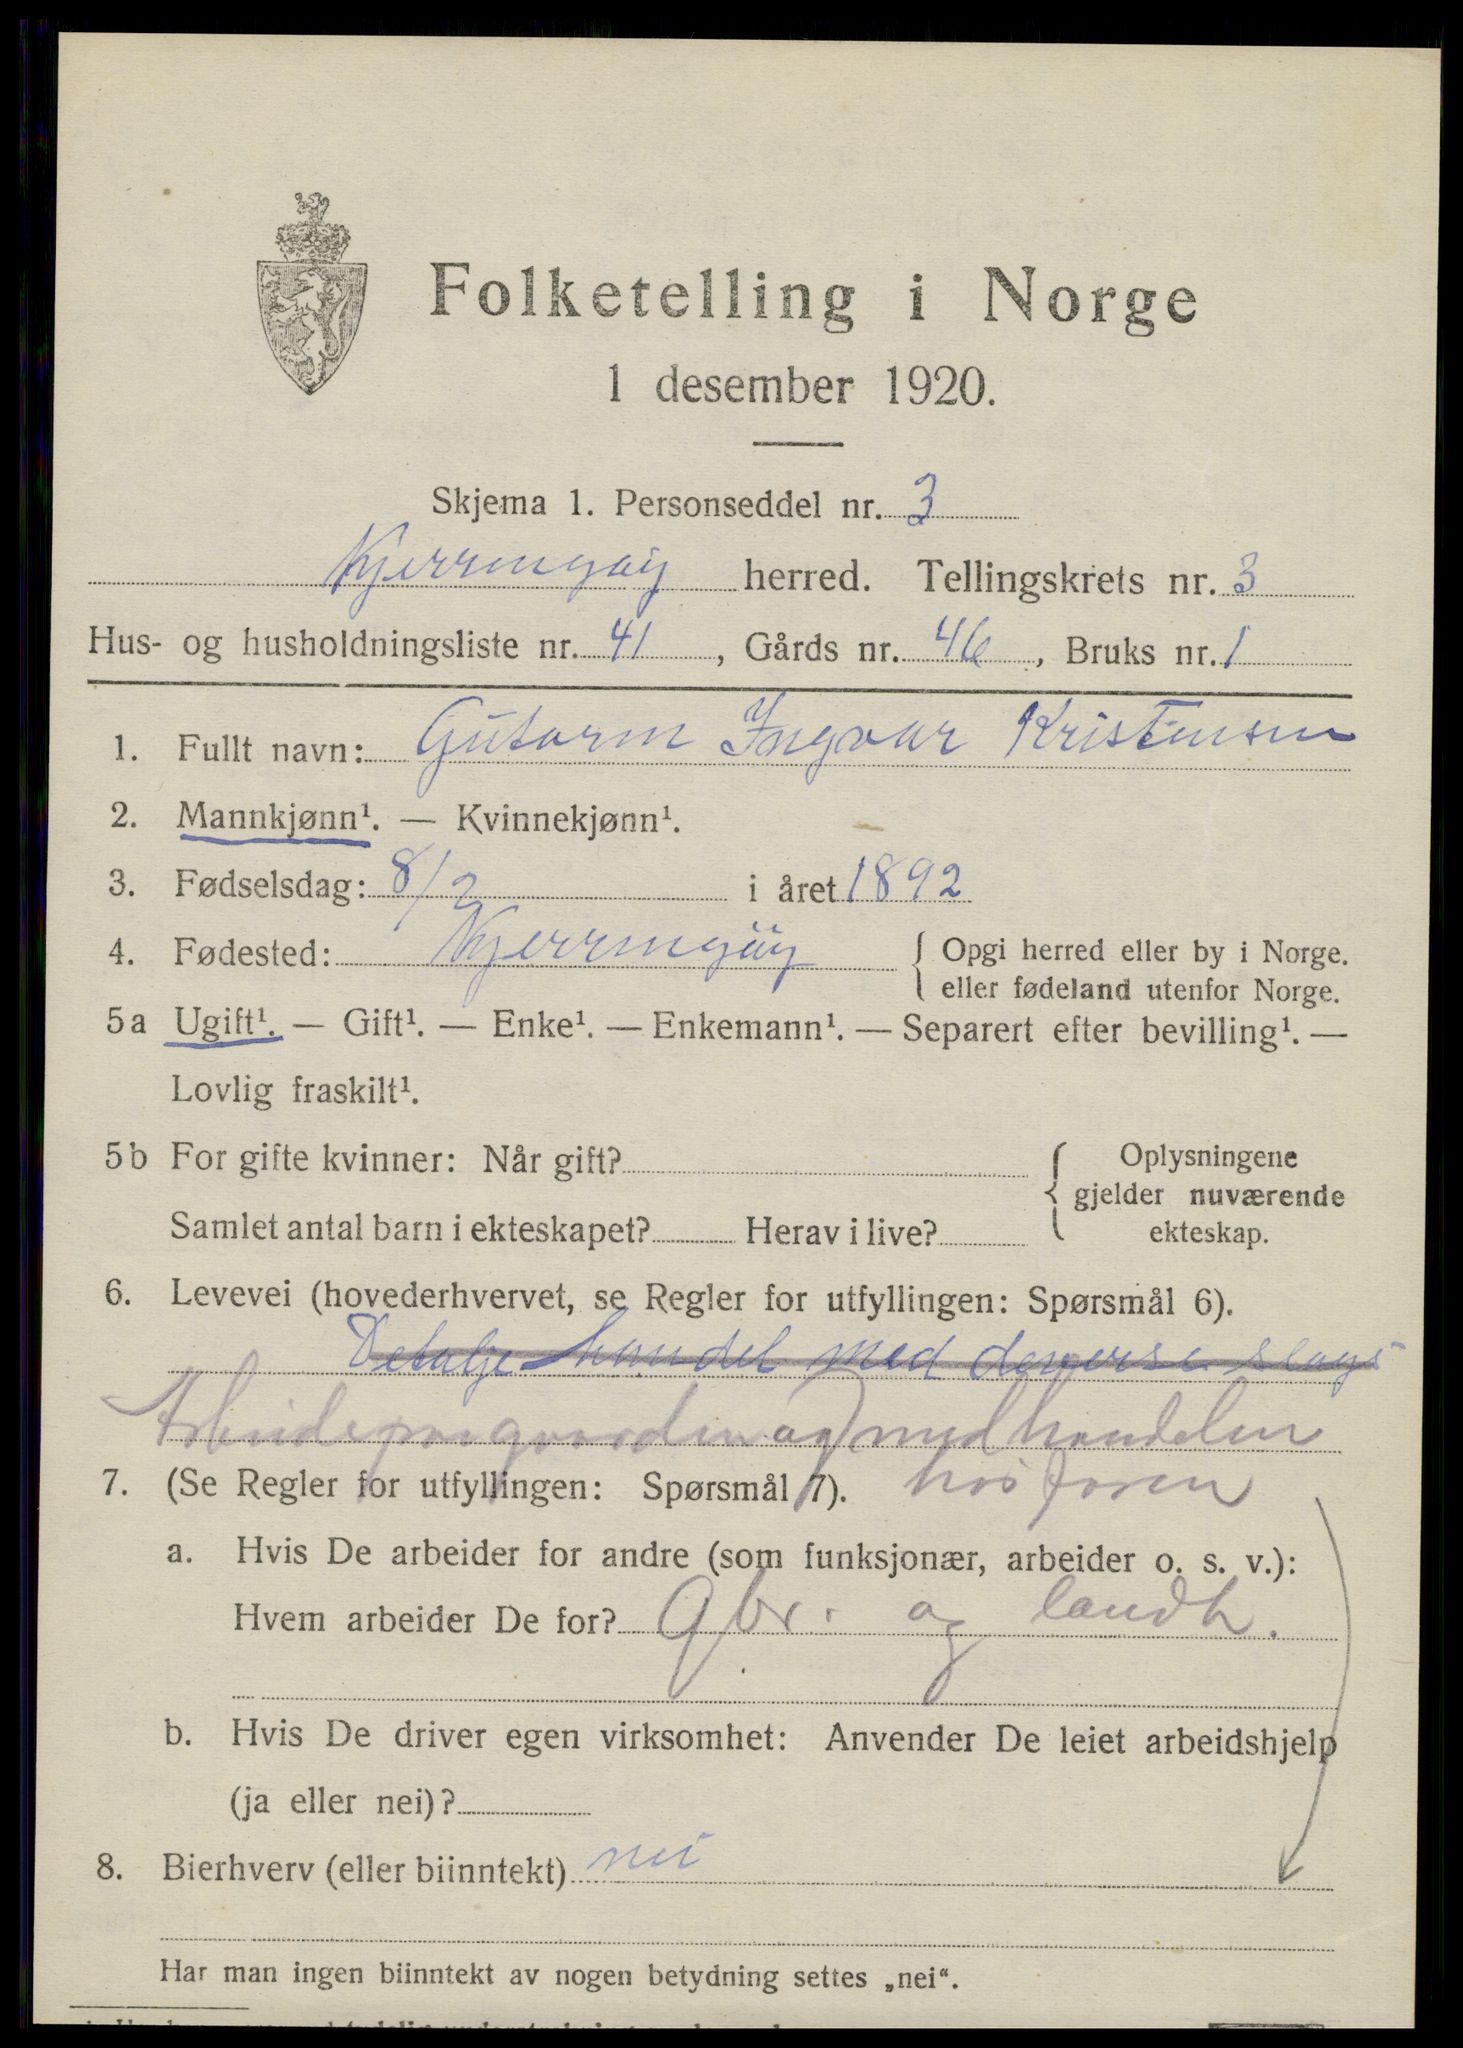 Folketelling i Norge
1 desember 1920.
Skjema 1. Personseddel nr. 3
Kjerringøy herred. Tellingskrets nr. 3
Hus- og husholdningsliste nr. 41, Gårds nr. 46, Bruks nr. 1
1. Fullt navn: Gutorm Ingvar Kristensen
2. Mannkjønn¹. — Kvinnekjønn¹.
3. Fødselsdag: 8/2 i året 1892
4. Fødested: Kjerringöy { Opgi herred eller by i Norge.
eller fødeland utenfor Norge.
5a Ugift¹. — Gift¹. — Enke¹. — Enkemann¹. — Separert efter bevilling¹. —
Lovlig fraskilt¹.
5b For gifte kvinner: Når gift? { Oplysningene
gjelder nuværende
Samlet antal barn i ekteskapet? Herav i live? ekteskap.
6. Levevei (hovederhvervet, se Regler for utfyllingen: Spørsmål 6).
Detalje handel med diverse slags
Arbeide paa gaarden og med handelen
7. (Se Regler for utfyllingen: Spørsmål 7). hos faren
a. Hvis De arbeider for andre (som funksjonær, arbeider o. s. v.):
Hvem arbeider De for? Gbr. og landh.
b. Hvis De driver egen virksomhet: Anvender De leiet arbeidshjelp
(ja eller nei)?
8. Bierhverv (eller biinntekt) nei
Har man ingen biinntekt av nogen betydning settes „nei“.